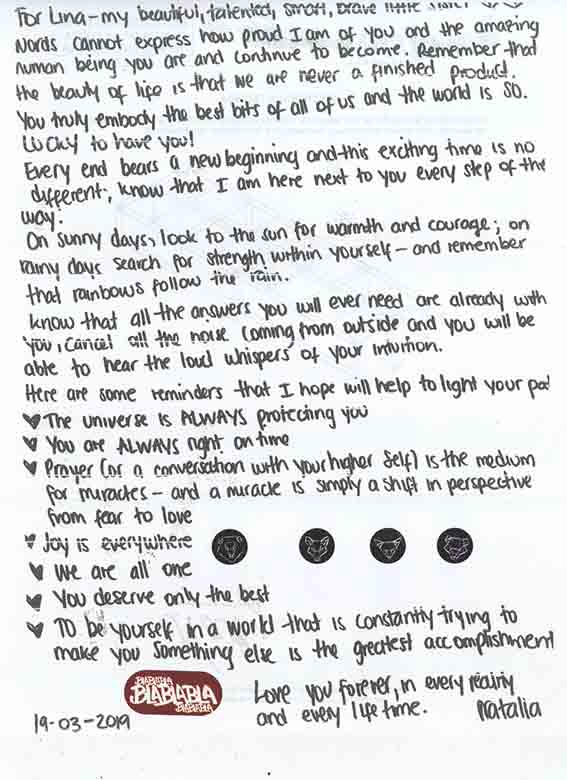 For Lina – my beautiful, talented, smart, brave little sister
Words cannot express how proud I am of you and the amazing
human being you are and continue to become. Remember that
the beauty of life is that we are never a finished product.
You truly embody the best bits of all of us and the world is so.
Lucky to have you!
Every end bears a new beginning and this exciting time is no
different; know that I am here next to you every step of the
way.
On sunny days, look to the sun for warmth and courage; on
rainy days search for strength within yourself – and remember
that rainbows follow the rain.
Know that all the answers you will ever need are already with
you, cancel all the noise coming from outside and you will be
able to hear the loud whispers of your intuition.
Here are some reminders that I hope will help to light your pa
♥ The universe is ALWAYS protecting you
♥ You are ALWAYS right on time
♥ Prayer (or a conversation with your higher self) is the medium
for miracles – and a miracle is simply a shift in perspective
from fear to love
♥ Joy is everywhere
♥ We are all one
♥ You deserve only the best
♥ To be yourself in a world that is constantly trying to
make you something else is the greatest accomplishment
BLABLABLA
BLABLABLA
BLABLABLA
Love you forever, in every reality
and every life time. Natalia
19-03-2019